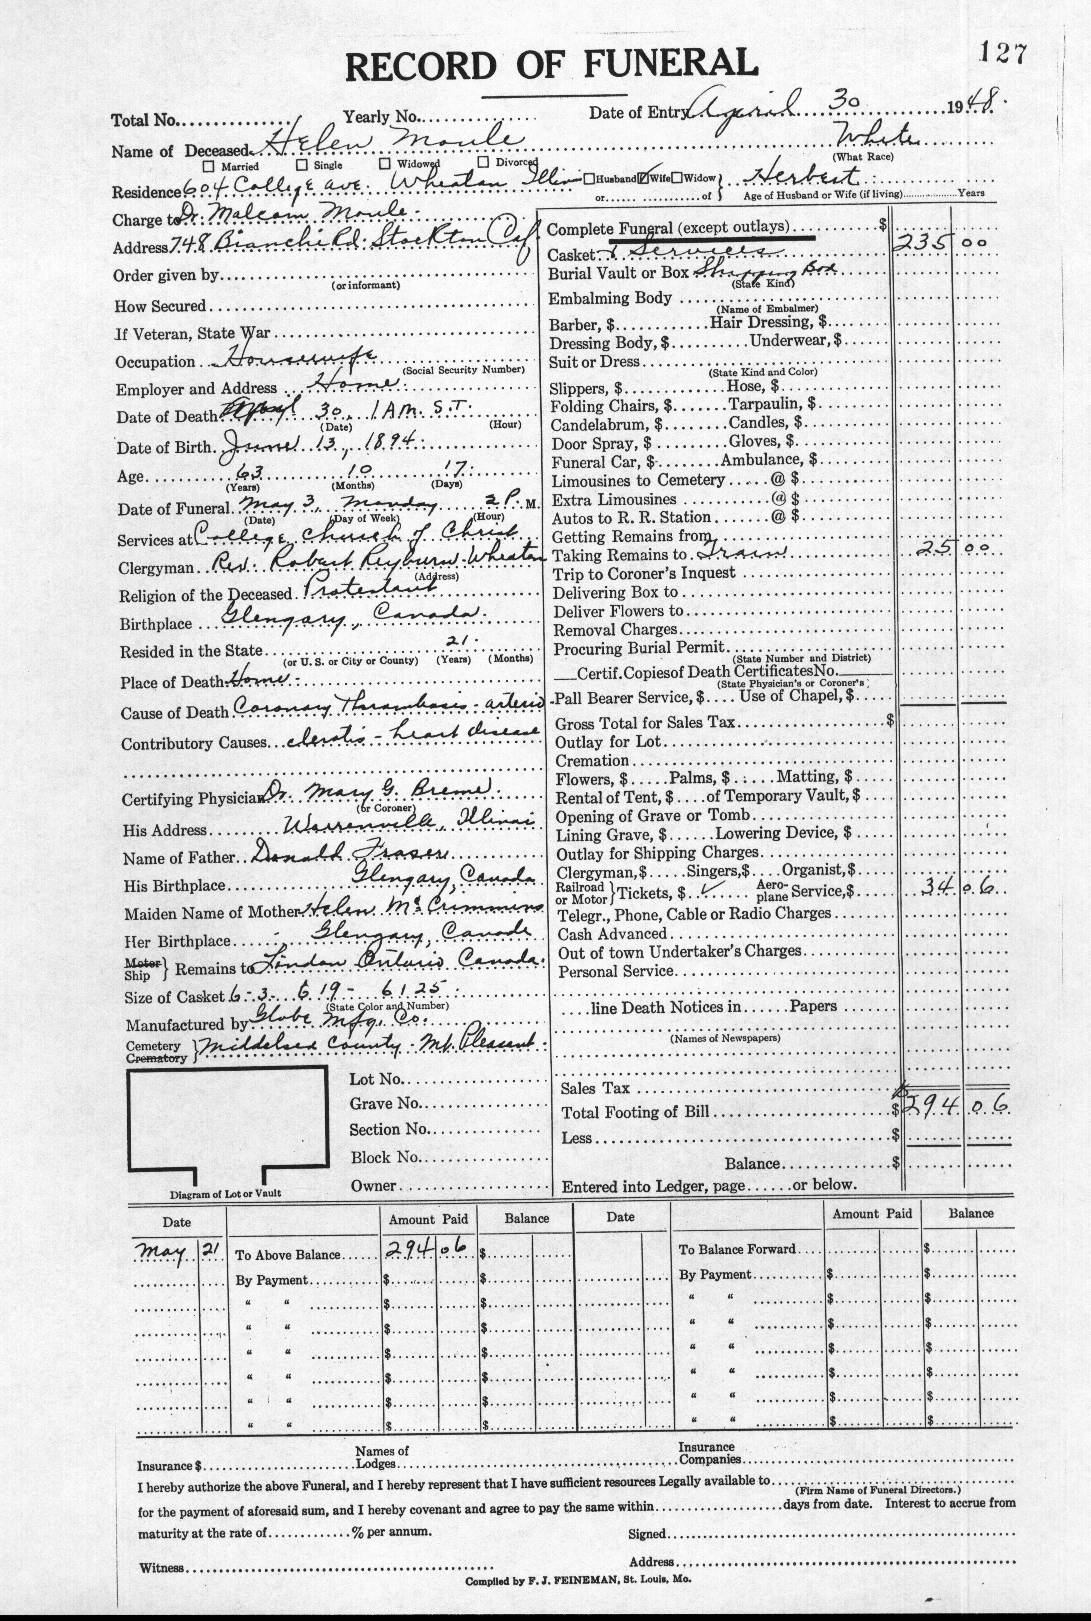 127
RECORD OF FUNERAL
Total No. Yearly No. Date of Entry April 30 1948.
Name of Deceased Helen Moule White
(What Race)
Married Single Widowed Divorced
Residence 604 College ave. Wheaton Husband Wife Widow } Herbert
or of } Age of Husband or Wife (if living) Years
Charge to Dr. Malcom Moule.
Address 748 Bianchi Rd. Stockton Caf
Order given by
(or informant)
How Secured
If Veteran, State War
Occupation Housewife
(Social Security Number)
Employer and Address Home.
Date of Death April 30, 1 A.M. S.T.
(Date) (Hour)
Date of Birth June 13, 1894.
Age 63 10 17.
(Years) (Months) (Days)
Date of Funeral May 3, Monday 2 P. M.
(Date) (Day of Week) (Hour)
Services at College Church of Christ
Clergyman Rev. Robert Reyburn Wheaton
(Address)
Religion of the Deceased Protestant
Birthplace Glengary, Canada.
Resided in the State 21.
(or U. S. or City or County) (Years) (Months)
Place of Death Home.
Cause of Death Coronary Thrombosis - arterio
Contributory Causes sclerotis - heart disease
Certifying Physician Dr. Mary G. Breme.
(or Coroner)
His Address Warrenville, Illinois
Name of Father Donald Fraser
His Birthplace Glengary, Canada
Maiden Name of Mother Helen McCrimmins
Her Birthplace Glengary, Canada
Motor Ship } Remains to London Ontario Canada.
Size of Casket 6-3. 6 19- 6125.
(State Color and Number)
Manufactured by Globe Mfg. Co.
Cemetery Crematory } Middelsex County - Mt. Pleasant.
Lot No.
Grave No.
Section No.
Block No.
Owner
Diagram of Lot or Vault
Complete Funeral (except outlays) $
Casket & Services 235 00
Burial Vault or Box Shipping Box
(State Kind)
Embalming Body
(Name of Embalmer)
Barber, $ Hair Dressing, $
Dressing Body, $ Underwear, $
Suit or Dress
(State Kind and Color)
Slippers, $ Hose, $
Folding Chairs, $ Tarpaulin, $
Candelabrum, $ Candles, $
Door Spray, $ Gloves, $
Funeral Car, $ Ambulance, $
Limousines to Cemetery @ $
Extra Limousines @ $
Autos to R. R. Station @ $
Getting Remains from
Taking Remains to Train 25 00
Trip to Coroner's Inquest
Delivering Box to
Deliver Flowers to
Removal Charges
Procuring Burial Permit
(State Number and District)
Certif. Copies of Death Certificates No.
(State Physician's or Coroner's)
Pall Bearer Service, $ Use of Chapel, $
Gross Total for Sales Tax $
Outlay for Lot
Cremation
Flowers, $ Palms, $ Matting, $
Rental of Tent, $ of Temporary Vault, $
Opening of Grave or Tomb
Lining Grave, $ Lowering Device, $
Outlay for Shipping Charges
Clergyman, $ Singers, $ Organist, $
Railroad or Motor } Tickets, $ ✓ Aero-plane Service, $ 34 06
Telegr., Phone, Cable or Radio Charges
Cash Advanced
Out of town Undertaker's Charges
Personal Service
line Death Notices in Papers
(Names of Newspapers)
Sales Tax
Total Footing of Bill $ 294 06
Less $
Balance $
Entered into Ledger, page or below.
Date Amount Paid Balance Date Amount Paid Balance
May 21 To Above Balance 294 06 $ To Balance Forward $
By Payment $ $ By Payment $ $
" " $ $ " " $ $
" " $ $ " " $ $
" " $ $ " " $ $
" " $ $ " " $ $
" " $ $ " " $ $
" " $ $ " " $ $
Insurance $ Names of Lodges Insurance Companies
I hereby authorize the above Funeral, and I hereby represent that I have sufficient resources Legally available to
(Firm Name of Funeral Directors.)
for the payment of aforesaid sum, and I hereby covenant and agree to pay the same within days from date. Interest to accrue from
maturity at the rate of % per annum. Signed
Witness Address
Compiled by F. J. FEINEMAN, St. Louis, Mo.